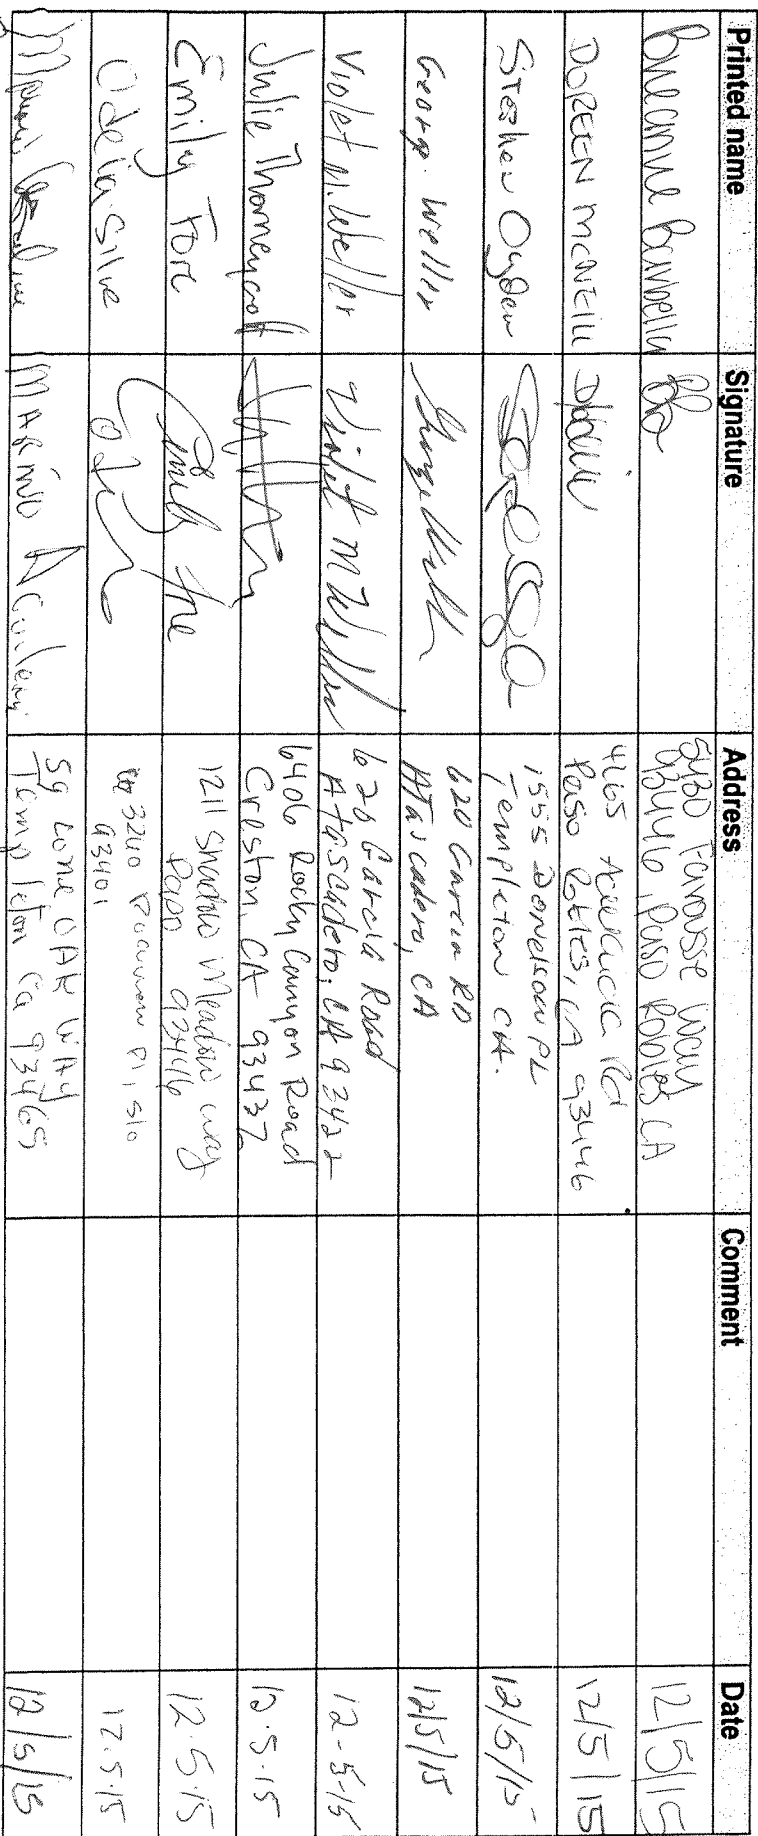 Printed name Signature Address Comment Date
Breanne Barbella
5430 Way
93446, Paso Robles CA
12/5/15
DOREEN McNEILL
4665 Rd
Paso Robles, CA 93446
12/5/15
Stephen Ogden
1555 Donelson PL
Templeton CA.
12/5/15
George Weller
620 Garcia RD
Atascadero, CA
12/5/15
Violet M. Weller Violet M Weller
620 Garcia Road
Atascadero, CA 93422
12-5-15
Julie Thorneycroft
6406 Rocky Canyon Road
Creston, CA 93432
12.5.15
Emily Fore Emily Fore
1211 Shadow Meadow way
Paso 93446
12.5.15
Odelia Silva
3240 Pl, slo
93401
12.5.15
59 Lone OAK WAY
Templeton Ca 93465
12/5/15